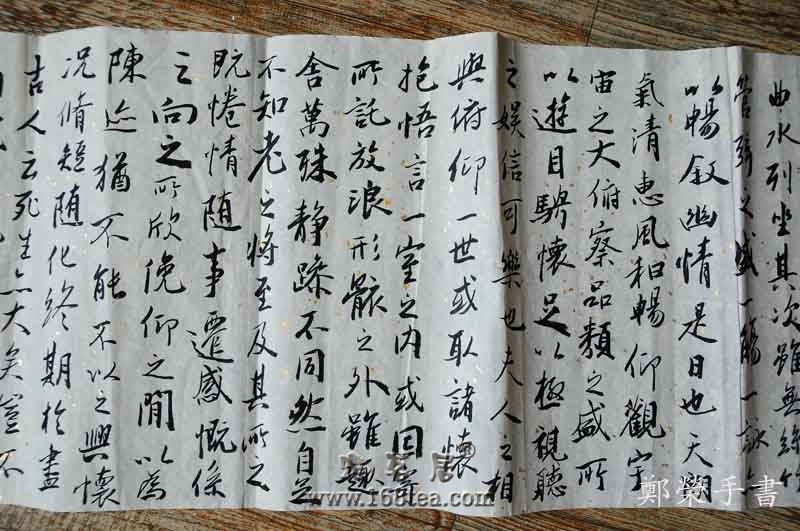 曲水列坐其次雖無絲竹
管弦之盛一觴一詠亦
以暢叙幽情是日也天朗
氣清惠風和暢仰觀宇
宙之大俯察品類之盛所
以遊目騁懷足以極視聽
之娛信可樂也夫人之相
與俯仰一世或取諸懷
抱悟言一室之内或因寄
所託放浪形骸之外雖趣
舍萬殊静躁不同然自足
不知老之將至及其所之
既惓情随事遷感慨係
之向之所欣俛仰之閒以為
陳迹猶不能不以之興懷
况脩短随化終期於盡
古人云死生亦大矣豈不
www.168tea.com
鄭榮手書